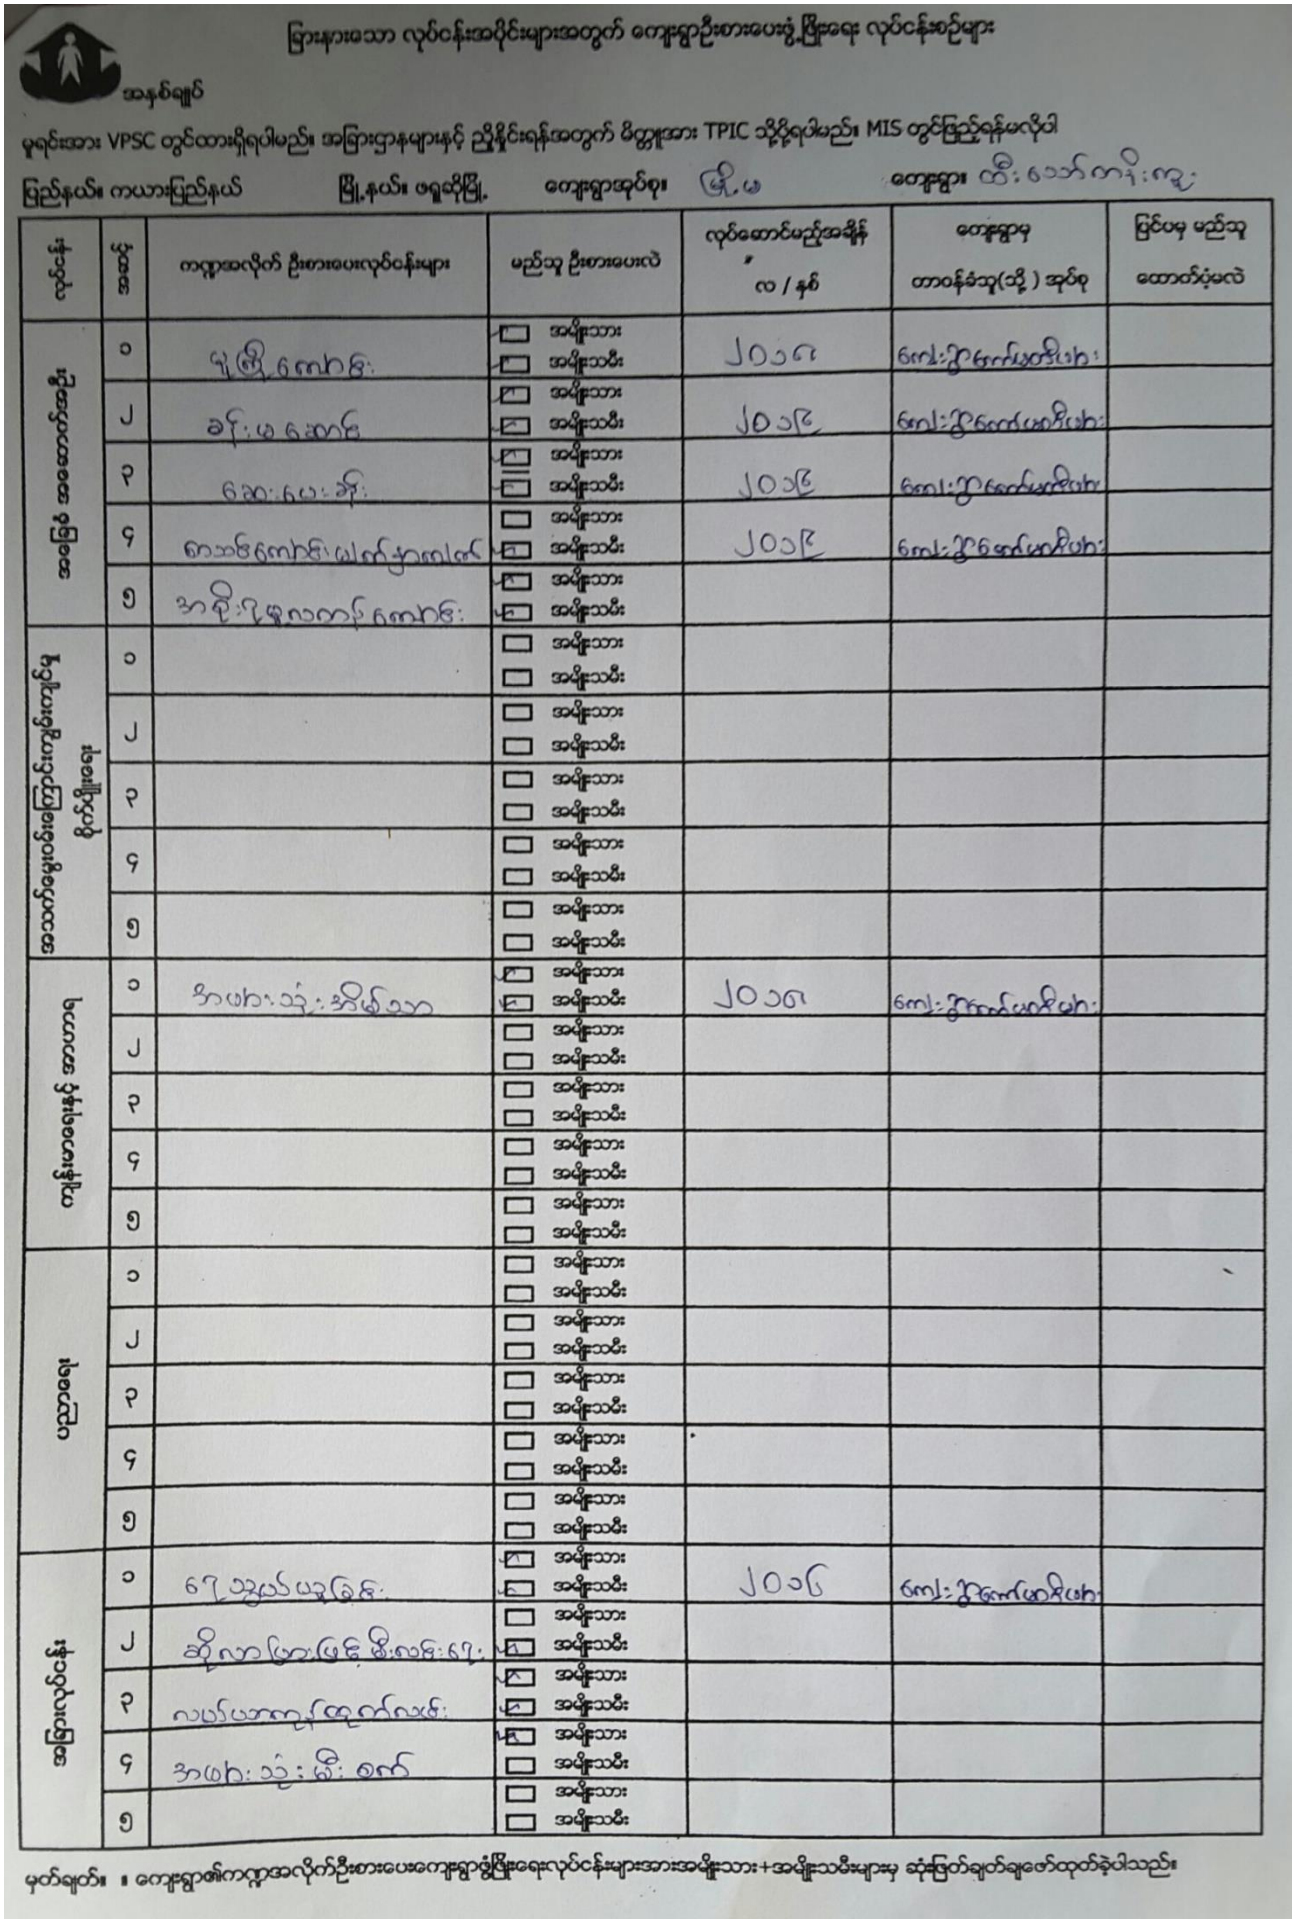 ခြားနားသော လုပ်ငန်းအပိုင်းများအတွက် ကျေးရွာဦးစားပေးဖွံ့ဖြိုးရေး လုပ်ငန်းစဉ်များ
အနှစ်ချုပ်
မူရင်းအား VPSC တွင်ထားရှိရပါမည်။ အခြားဌာနများနှင့် ညှိနှိုင်းရန်အတွက် မိတ္တူအား TPIC သို့ပို့ရပါမည်။ MIS တွင်ဖြည့်ရန်မလိုပါ
ပြည်နယ်။ ကယားပြည်နယ် မြို့နယ်။ ဖရူဆိုမြို့ ကျေးရွာအုပ်စု။ မြို့မ ကျေးရွာ။
လုပ်ငန်း အဆင့် ကဏ္ဍအလိုက် ဦးစားပေးလုပ်ငန်းများ မည်သူ ဦးစားပေးလဲ လုပ်ဆောင်မည့်အချိန် လ / နှစ် ကျေးရွာမှ တာဝန်ခံသူ(သို့) အုပ်စု ပြင်ပမှ မည်သူ ထောက်ပံ့မလဲ
အခြေခံအဆောက်အဦး
၁ မူကြိုကျောင်း အမျိုးသား အမျိုးသမီး ၂၀၁၈ ကျေးရွာကော်မတီများ
၂ ခန်းမဆောင် အမျိုးသား အမျိုးသမီး ၂၀၁၆ ကျေးရွာကော်မတီများ
၃ ဆေးပေးခန်း အမျိုးသား အမျိုးသမီး ၂၀၁၆ ကျေးရွာကော်မတီများ
၄ အမျိုးသား အမျိုးသမီး ၂၀၁၆ ကျေးရွာကော်မတီများ
၅ အစိုးရမူလတန်းကျောင်း အမျိုးသား အမျိုးသမီး
၁ အမျိုးသား အမျိုးသမီး
၂ အမျိုးသား အမျိုးသမီး
၃ အမျိုးသား အမျိုးသမီး
၄ အမျိုးသား အမျိုးသမီး
၅ အမျိုးသား အမျိုးသမီး
၁ အများသုံးအိမ်သာ အမျိုးသား အမျိုးသမီး ၂၀၁၈ ကျေးရွာကော်မတီများ
၂ အမျိုးသား အမျိုးသမီး
၃ အမျိုးသား အမျိုးသမီး
၄ အမျိုးသား အမျိုးသမီး
၅ အမျိုးသား အမျိုးသမီး
ပညာရေး
၁ အမျိုးသား အမျိုးသမီး
၂ အမျိုးသား အမျိုးသမီး
၃ အမျိုးသား အမျိုးသမီး
၄ အမျိုးသား အမျိုးသမီး
၅ အမျိုးသား အမျိုးသမီး
အခြားလုပ်ငန်း
၁ ရေသွယ်ယူခြင်း အမျိုးသား အမျိုးသမီး ၂၀၁၆ ကျေးရွာကော်မတီများ
၂ ဆိုလာပြားဖြင့်မီးလင်းရေး အမျိုးသား အမျိုးသမီး
၃ လယ်ယာကုန်ထုတ်လမ်း အမျိုးသား အမျိုးသမီး
၄ အများသုံးမီးစက် အမျိုးသား အမျိုးသမီး
၅ အမျိုးသား အမျိုးသမီး
မှတ်ချက်။ ။ ကျေးရွာ၏ကဏ္ဍအလိုက်ဦးစားပေးကျေးရွာဖွံ့ဖြိုးရေးလုပ်ငန်းများအားအမျိုးသား+အမျိုးသမီးများမှ ဆုံးဖြတ်ချက်ချဖော်ထုတ်ခဲ့ပါသည်။